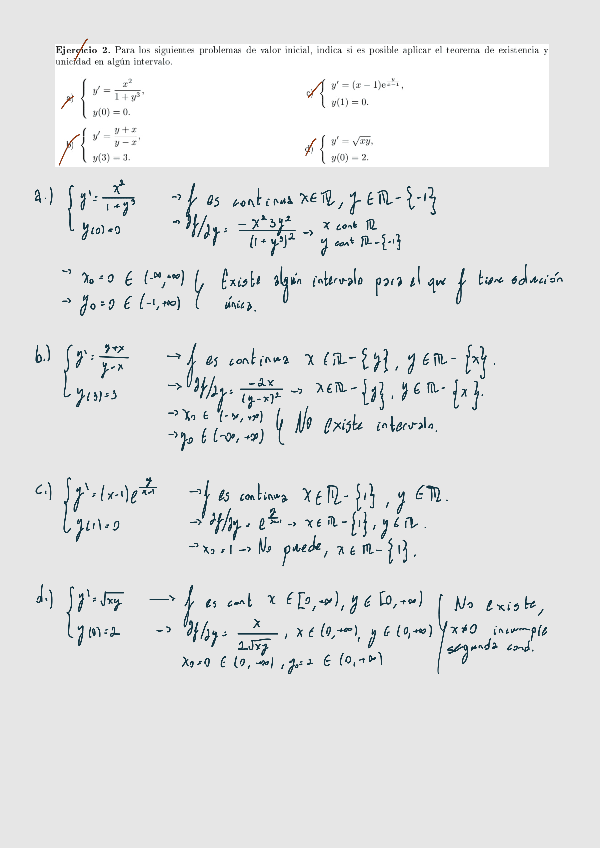 Ejercicio 2. Para los siguientes problemas de valor inicial, indica si es posible aplicar el teorema de existencia y
unicidad en algún intervalo.
a) { y' = x² / (1 + y³), y(0) = 0.
c) { y' = (x − 1)e^(y/(x−1)), y(1) = 0.
b) { y' = (y + x)/(y − x), y(3) = 3.
d) { y' = √xy, y(0) = 2.
a.) { y' = x²/(1+y³) → f es continua x∈ℝ, y ∈ℝ-{-1}
y(0)=0 → ∂f/∂y = -x²3y²/(1+y³)² → x cont ℝ
y cont ℝ-{-1}
→ x₀=0 ∈ (-∞,+∞) } Existe algún intervalo para el que f tiene solución
→ y₀=0 ∈ (-1,+∞) única.
b.) { y' = (y+x)/(y-x) → f es continua x∈ℝ-{y}, y∈ℝ-{x}.
y(3)=3 → ∂f/∂y = -2x/(y-x)² → x∈ℝ-{y}, y∈ℝ-{x}.
→ x₀ ∈ (-∞,+∞) } No existe intervalo.
→ y₀ ∈ (-∞,+∞)
c.) { y' = (x-1)e^(y/(x-1)) → f es continua x∈ℝ-{1}, y∈ℝ.
y(1)=0 → ∂f/∂y = e^(y/(x-1)) → x∈ℝ-{1}, y∈ℝ.
→ x₀=1 → No puede, x∈ℝ-{1}.
d.) { y' = √xy → f es cont x∈[0,+∞), y∈[0,+∞) } No existe,
y(0)=2 → ∂f/∂y = x/(2√xy), x∈(0,+∞), y∈(0,+∞) x≠0 incumple
x₀=0 ∈ (0,+∞), y₀=2 ∈ (0,+∞) segunda cond.